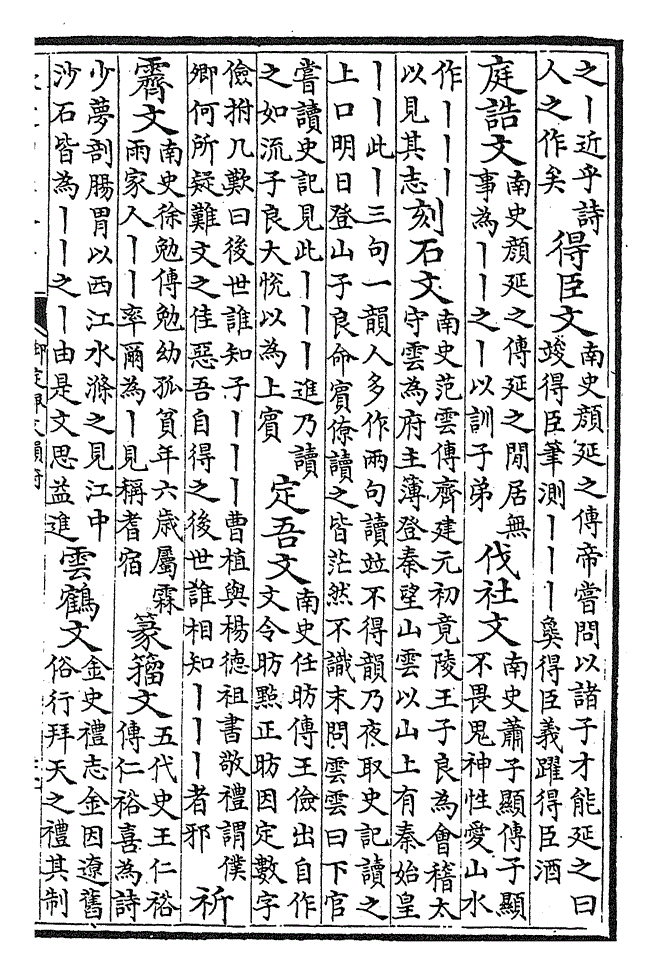 之丨近乎詩
人之作矣
得臣文
南史顏延之傳帝嘗問以諸子才能延之曰
竣得臣筆測丨丨丨㚟得臣義躍得臣酒
庭誥文
南史顏延之傳延之閒居無
事為丨丨之丨以訓子弟
伐社文
南史蕭子顯傳子顯
不畏鬼神性愛山水
作丨丨丨
以見其志
刻石文
南史范雲傳齊建元初竟陵王子良為會稽太
守雲為府主薄登秦望山雲以山上有秦始皇
丨丨此丨三句一韻人多作兩句讀竝不得韻乃夜取史記讀之
上口明日登山子良命賓僚讀之皆茫然不識末問雲雲曰下官
嘗讀史記見此丨丨丨進乃讀
之如流子良大悅以為上賓
定吾文
南史任昉傳王儉出自作
文令昉點正昉因定數字
儉拊几歎曰後世誰知子丨丨丨曹植與楊德祖書敬禮謂僕
卿何所疑難文之佳惡吾自得之後世誰相知丨丨丨者邪
祈
霽文
南史徐勉傳勉幼孤貧年六歲屬霖
雨家人丨丨率爾為丨見稱耆宿
篆籀文
五代史王仁裕
傳仁裕喜為詩
少夢剖腸胃以西江水滌之見江中
沙石皆為丨丨之丨由是文思益進
雲鶴文
金史禮志金因遼舊
俗行拜天之禮其制